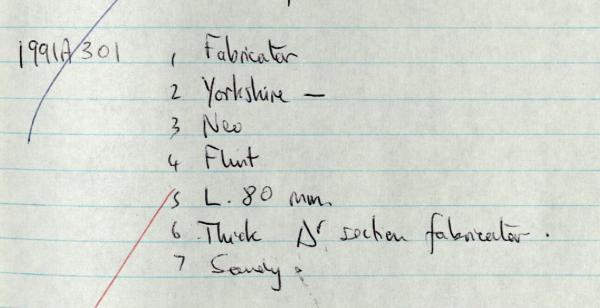 1991A 301 1 Fabricator
2 Yorkshire —
3 Neo
4 Flint
5 L. 80 mm.
6 Thick Δr section fabricator.
7 Sandy.